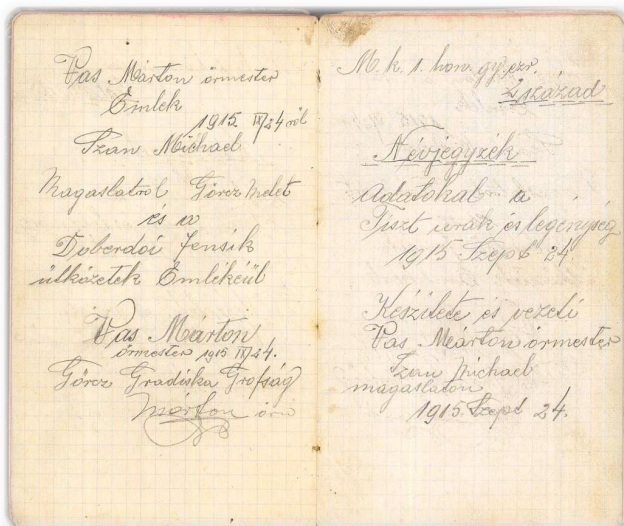 Vas Márton örmester
Emlék
1915 IX/24 ről
Szan Michael
Magaslatról Görcz melet
és a
Doberdói fensik
ütközetek Emlékéül
Vas Márton
örmester 1915 IX/24.
Görcz Gradiska Grofság
Márton örm
M. k. 1. hon. gy. ezr.
2 század
Névjegyzék
Adatokal a
Tiszt urak és legénység
1915 Szept 24
Készitete és vezeti
Vas Márton örmester
Szan Michael
magaslaton
1915. Szept 24.